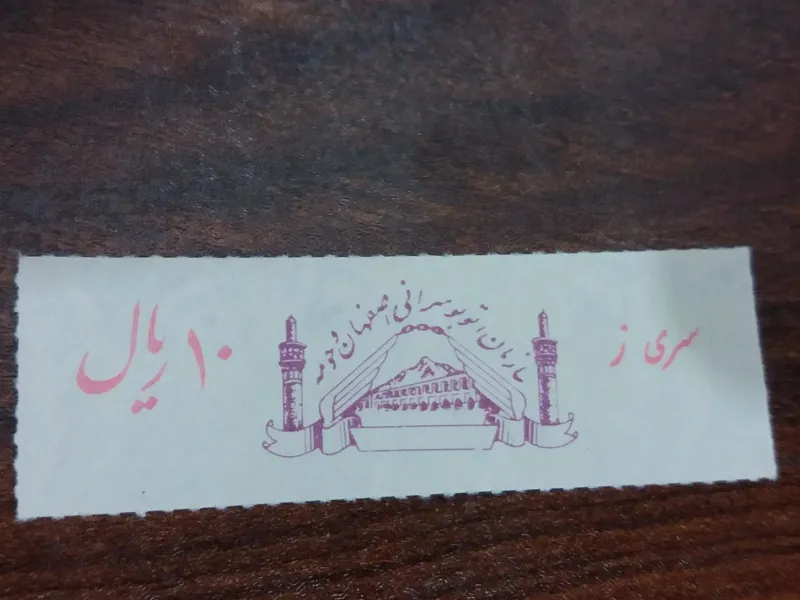 سازمان اتوبوسرانی اصفهان و حومه
سری ز
۱۰ ریال